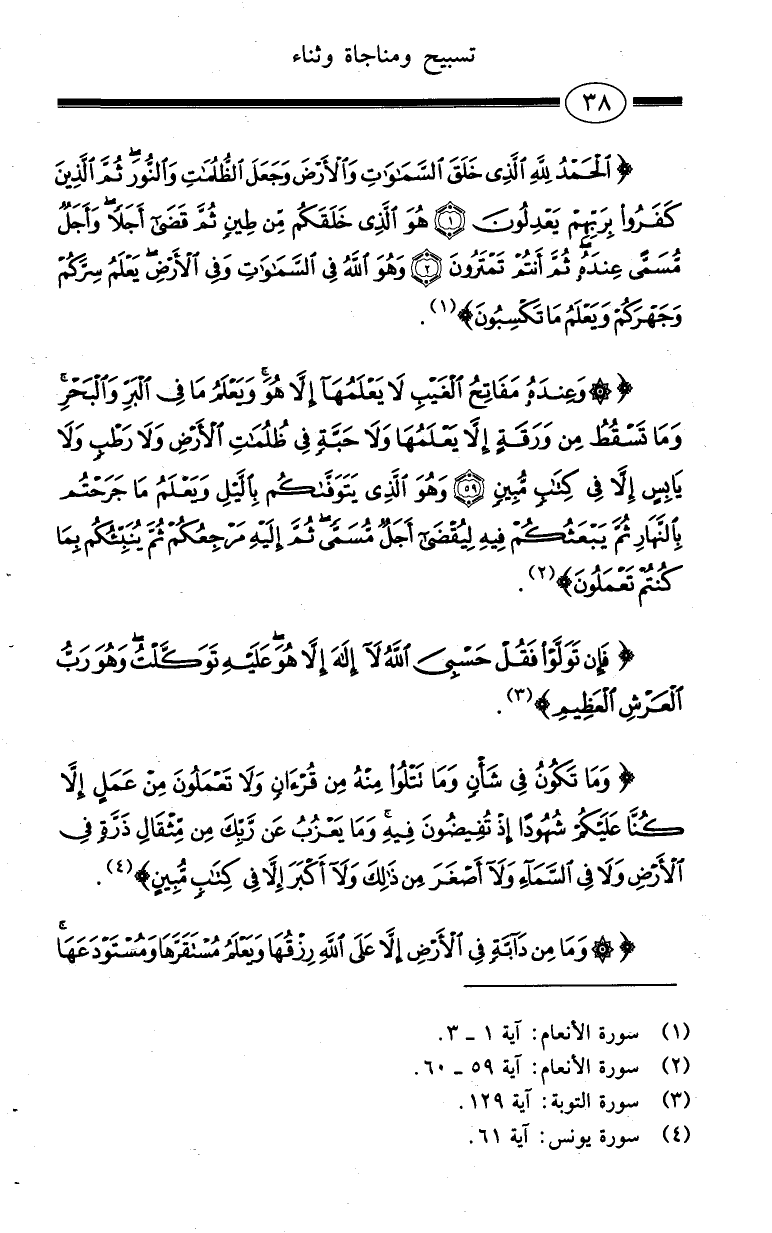 تسبيح ومناجاة وثناء
٣٨
﴿ ٱلْحَمْدُ لِلَّهِ ٱلَّذِى خَلَقَ ٱلسَّمَـٰوَٰتِ وَٱلْأَرْضَ وَجَعَلَ ٱلظُّلُمَـٰتِ وَٱلنُّورَ ۖ ثُمَّ ٱلَّذِينَ
كَفَرُوا۟ بِرَبِّهِمْ يَعْدِلُونَ ۝١ هُوَ ٱلَّذِى خَلَقَكُم مِّن طِينٍ ثُمَّ قَضَىٰٓ أَجَلًا ۖ وَأَجَلٌ
مُّسَمًّى عِندَهُۥ ۖ ثُمَّ أَنتُمْ تَمْتَرُونَ ۝٢ وَهُوَ ٱللَّهُ فِى ٱلسَّمَـٰوَٰتِ وَفِى ٱلْأَرْضِ ۖ يَعْلَمُ سِرَّكُمْ
وَجَهْرَكُمْ وَيَعْلَمُ مَا تَكْسِبُونَ﴾(١).
﴿ ۞ وَعِندَهُۥ مَفَاتِحُ ٱلْغَيْبِ لَا يَعْلَمُهَآ إِلَّا هُوَ ۚ وَيَعْلَمُ مَا فِى ٱلْبَرِّ وَٱلْبَحْرِ ۚ
وَمَا تَسْقُطُ مِن وَرَقَةٍ إِلَّا يَعْلَمُهَا وَلَا حَبَّةٍ فِى ظُلُمَـٰتِ ٱلْأَرْضِ وَلَا رَطْبٍ وَلَا
يَابِسٍ إِلَّا فِى كِتَـٰبٍ مُّبِينٍ ۝٥٩ وَهُوَ ٱلَّذِى يَتَوَفَّىٰكُم بِٱلَّيْلِ وَيَعْلَمُ مَا جَرَحْتُم
بِٱلنَّهَارِ ثُمَّ يَبْعَثُكُمْ فِيهِ لِيُقْضَىٰٓ أَجَلٌ مُّسَمًّى ۖ ثُمَّ إِلَيْهِ مَرْجِعُكُمْ ثُمَّ يُنَبِّئُكُم بِمَا
كُنتُمْ تَعْمَلُونَ﴾(٢).
﴿ فَإِن تَوَلَّوْا۟ فَقُلْ حَسْبِىَ ٱللَّهُ لَآ إِلَـٰهَ إِلَّا هُوَ ۖ عَلَيْهِ تَوَكَّلْتُ ۖ وَهُوَ رَبُّ
ٱلْعَرْشِ ٱلْعَظِيمِ﴾(٣).
﴿ وَمَا تَكُونُ فِى شَأْنٍ وَمَا تَتْلُوا۟ مِنْهُ مِن قُرْءَانٍ وَلَا تَعْمَلُونَ مِنْ عَمَلٍ إِلَّا
كُنَّا عَلَيْكُمْ شُهُودًا إِذْ تُفِيضُونَ فِيهِ ۚ وَمَا يَعْزُبُ عَن رَّبِّكَ مِن مِّثْقَالِ ذَرَّةٍ فِى
ٱلْأَرْضِ وَلَا فِى ٱلسَّمَآءِ وَلَآ أَصْغَرَ مِن ذَٰلِكَ وَلَآ أَكْبَرَ إِلَّا فِى كِتَـٰبٍ مُّبِينٍ﴾(٤).
﴿ ۞ وَمَا مِن دَآبَّةٍ فِى ٱلْأَرْضِ إِلَّا عَلَى ٱللَّهِ رِزْقُهَا وَيَعْلَمُ مُسْتَقَرَّهَا وَمُسْتَوْدَعَهَا ۚ
(١) سورة الأنعام: آية ١ ـ ٣.
(٢) سورة الأنعام: آية ٥٩ ـ ٦٠.
(٣) سورة التوبة: آية ١٢٩.
(٤) سورة يونس: آية ٦١.